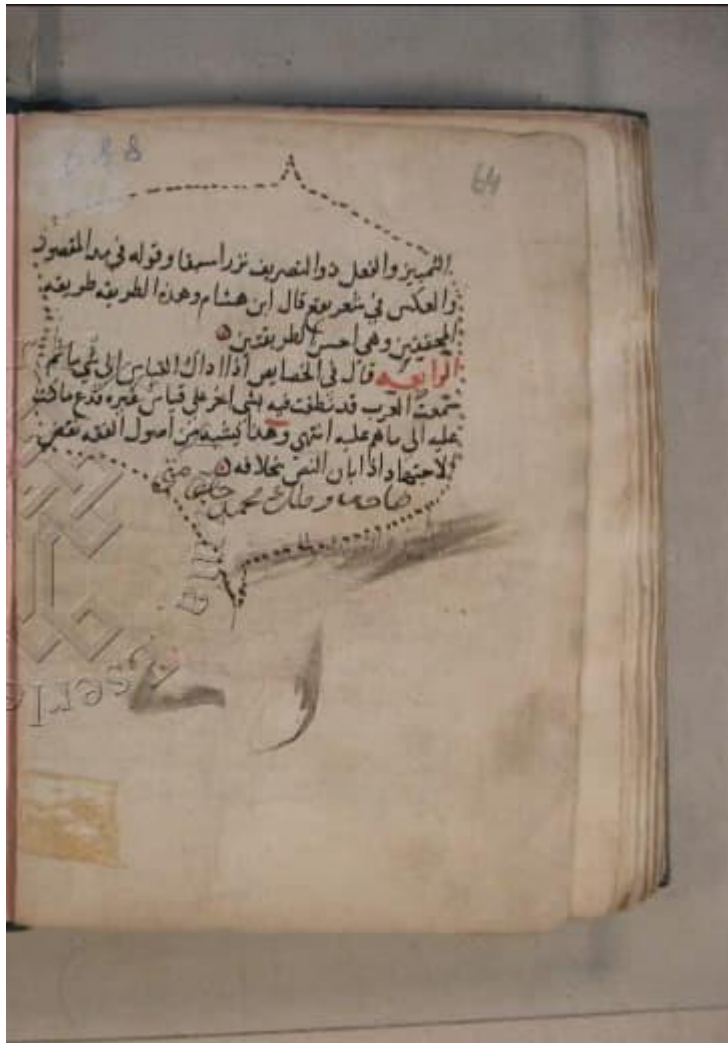 688
64
التمييز والفعل ذو التصريف نزرا سبقا وقوله في مد المقصور
والعكس في شعر يقع قال ابن هشام وهذه الطريقه طريقه
المحققين وهي احسن الطريقتين
الرابعه قال في الخصايص اذا اداك القياس الى شي ما ثم
سمعت العرب قد نطقت فيه بشي اخر على قياس غيره فدع ما كنت
عليه الى ما هم عليه انتهى وهذا يشبه من اصول الفقه نقض
الاجتهاد اذا بان النص بخلافه
محمد